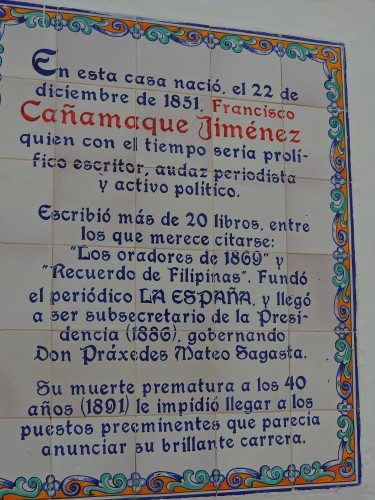 En esta casa nació, el 22 de
diciembre de 1851, Francisco
Cañamaque Jiménez
quien con el tiempo sería prolí-
fico escritor, audaz periodista
y activo político.
Escribió más de 20 libros, entre
los que merece citarse:
"Los oradores de 1869" y
"Recuerdo de Filipinas". Fundó
el periódico LA ESPAÑA, y llegó
a ser subsecretario de la Presi-
dencia (1886), gobernando
Don Práxedes Mateo Sagasta.
Su muerte prematura a los 40
años (1891) le impidió llegar a los
puestos preeminentes que parecía
anunciar su brillante carrera.